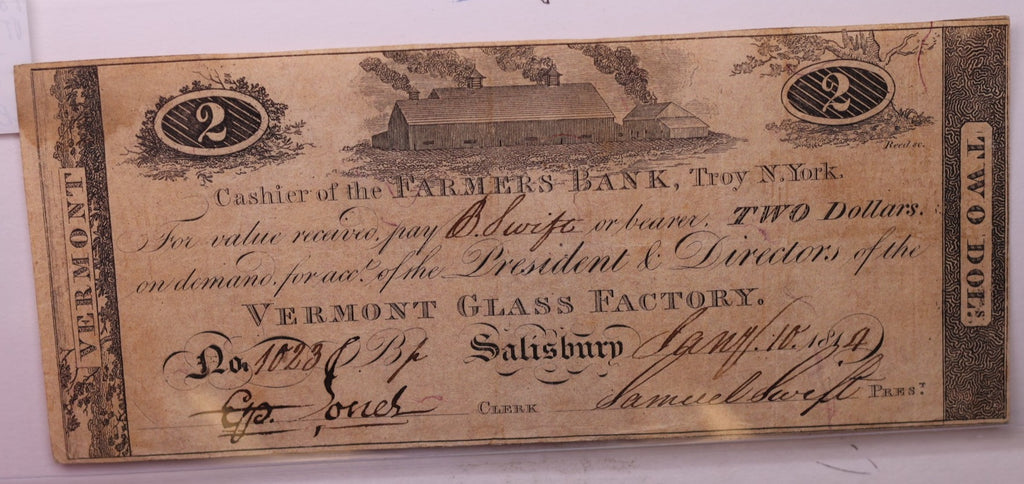 2
2
Reed sc.
Cashier of the FARMERS BANK, Troy N. York.
For value received, pay B. Swift or bearer, TWO Dollars.
on demand, for acct. of the President & Directors of the
VERMONT GLASS FACTORY.
No. 1023 B Salisbury Jany. 10. 1814
Ep. Jones CLERK Samuel Swift PREST.
VERMONT
TWO DOLS.